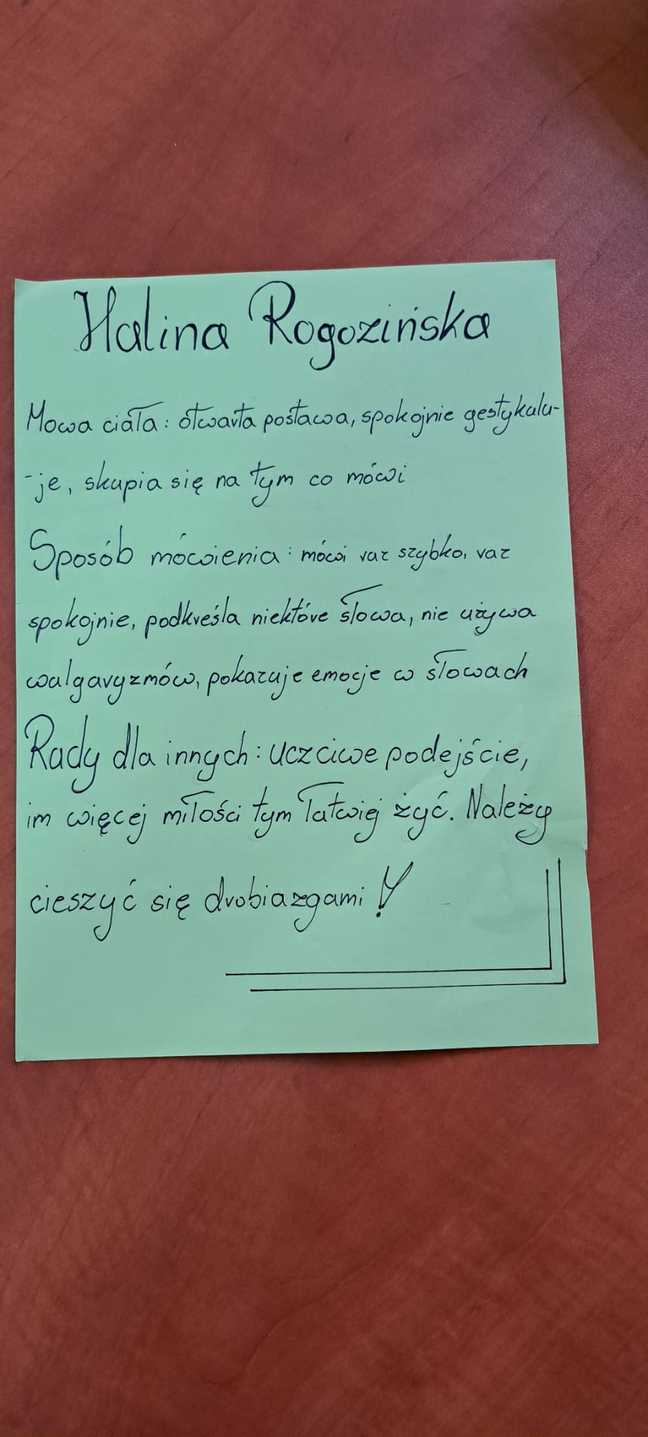 Halina Rogozińska
Mowa ciała: otwarta postawa, spokojnie gestykulu-
-je, skupia się na tym co mówi
Sposób mówienia: mówi raz szybko, raz
spokojnie, podkreśla niektóre słowa, nie używa
walgaryzmów, pokazuje emocje w słowach
Rady dla innych: uczciwe podejście,
im więcej miłości tym łatwiej żyć. Należy
cieszyć się drobiazgami!